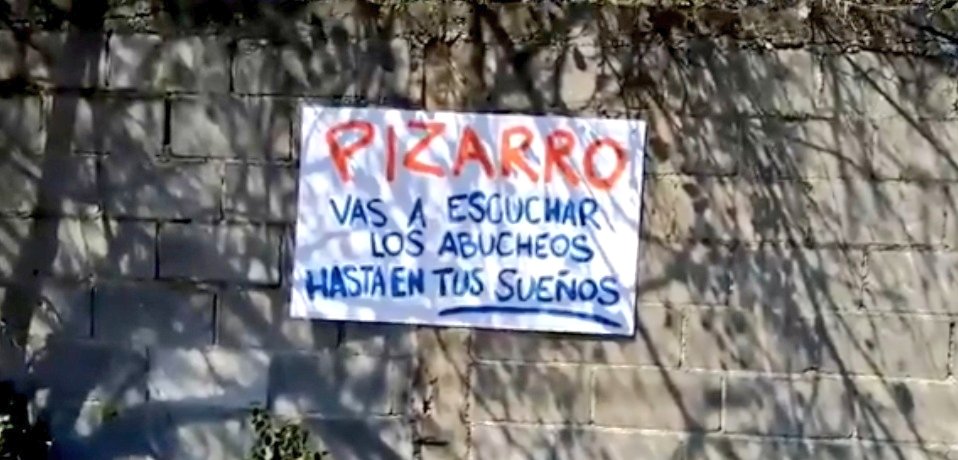 PIZARRO
VAS A ESCUCHAR
LOS ABUCHEOS
HASTA EN TUS SUEÑOS